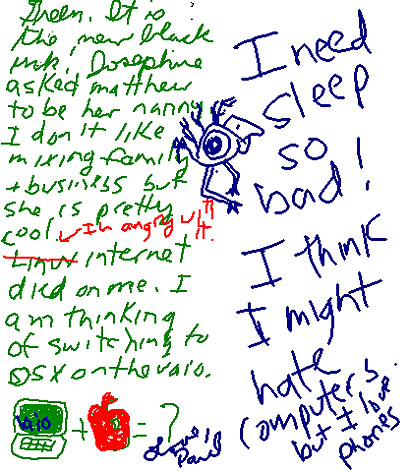 Green. It is
the new black
ink! Josephine
asked matthew
to be her nanny
I don't like
mixing family
+ business but
she is pretty
cool.
I'm angry with it.
Linux internet
died on me. I
am thinking
of switching to
OSX on the vaio.
vaio + = ?
I need
sleep
so
bad!
I think
I might
hate
computers
but I love
phones
love,